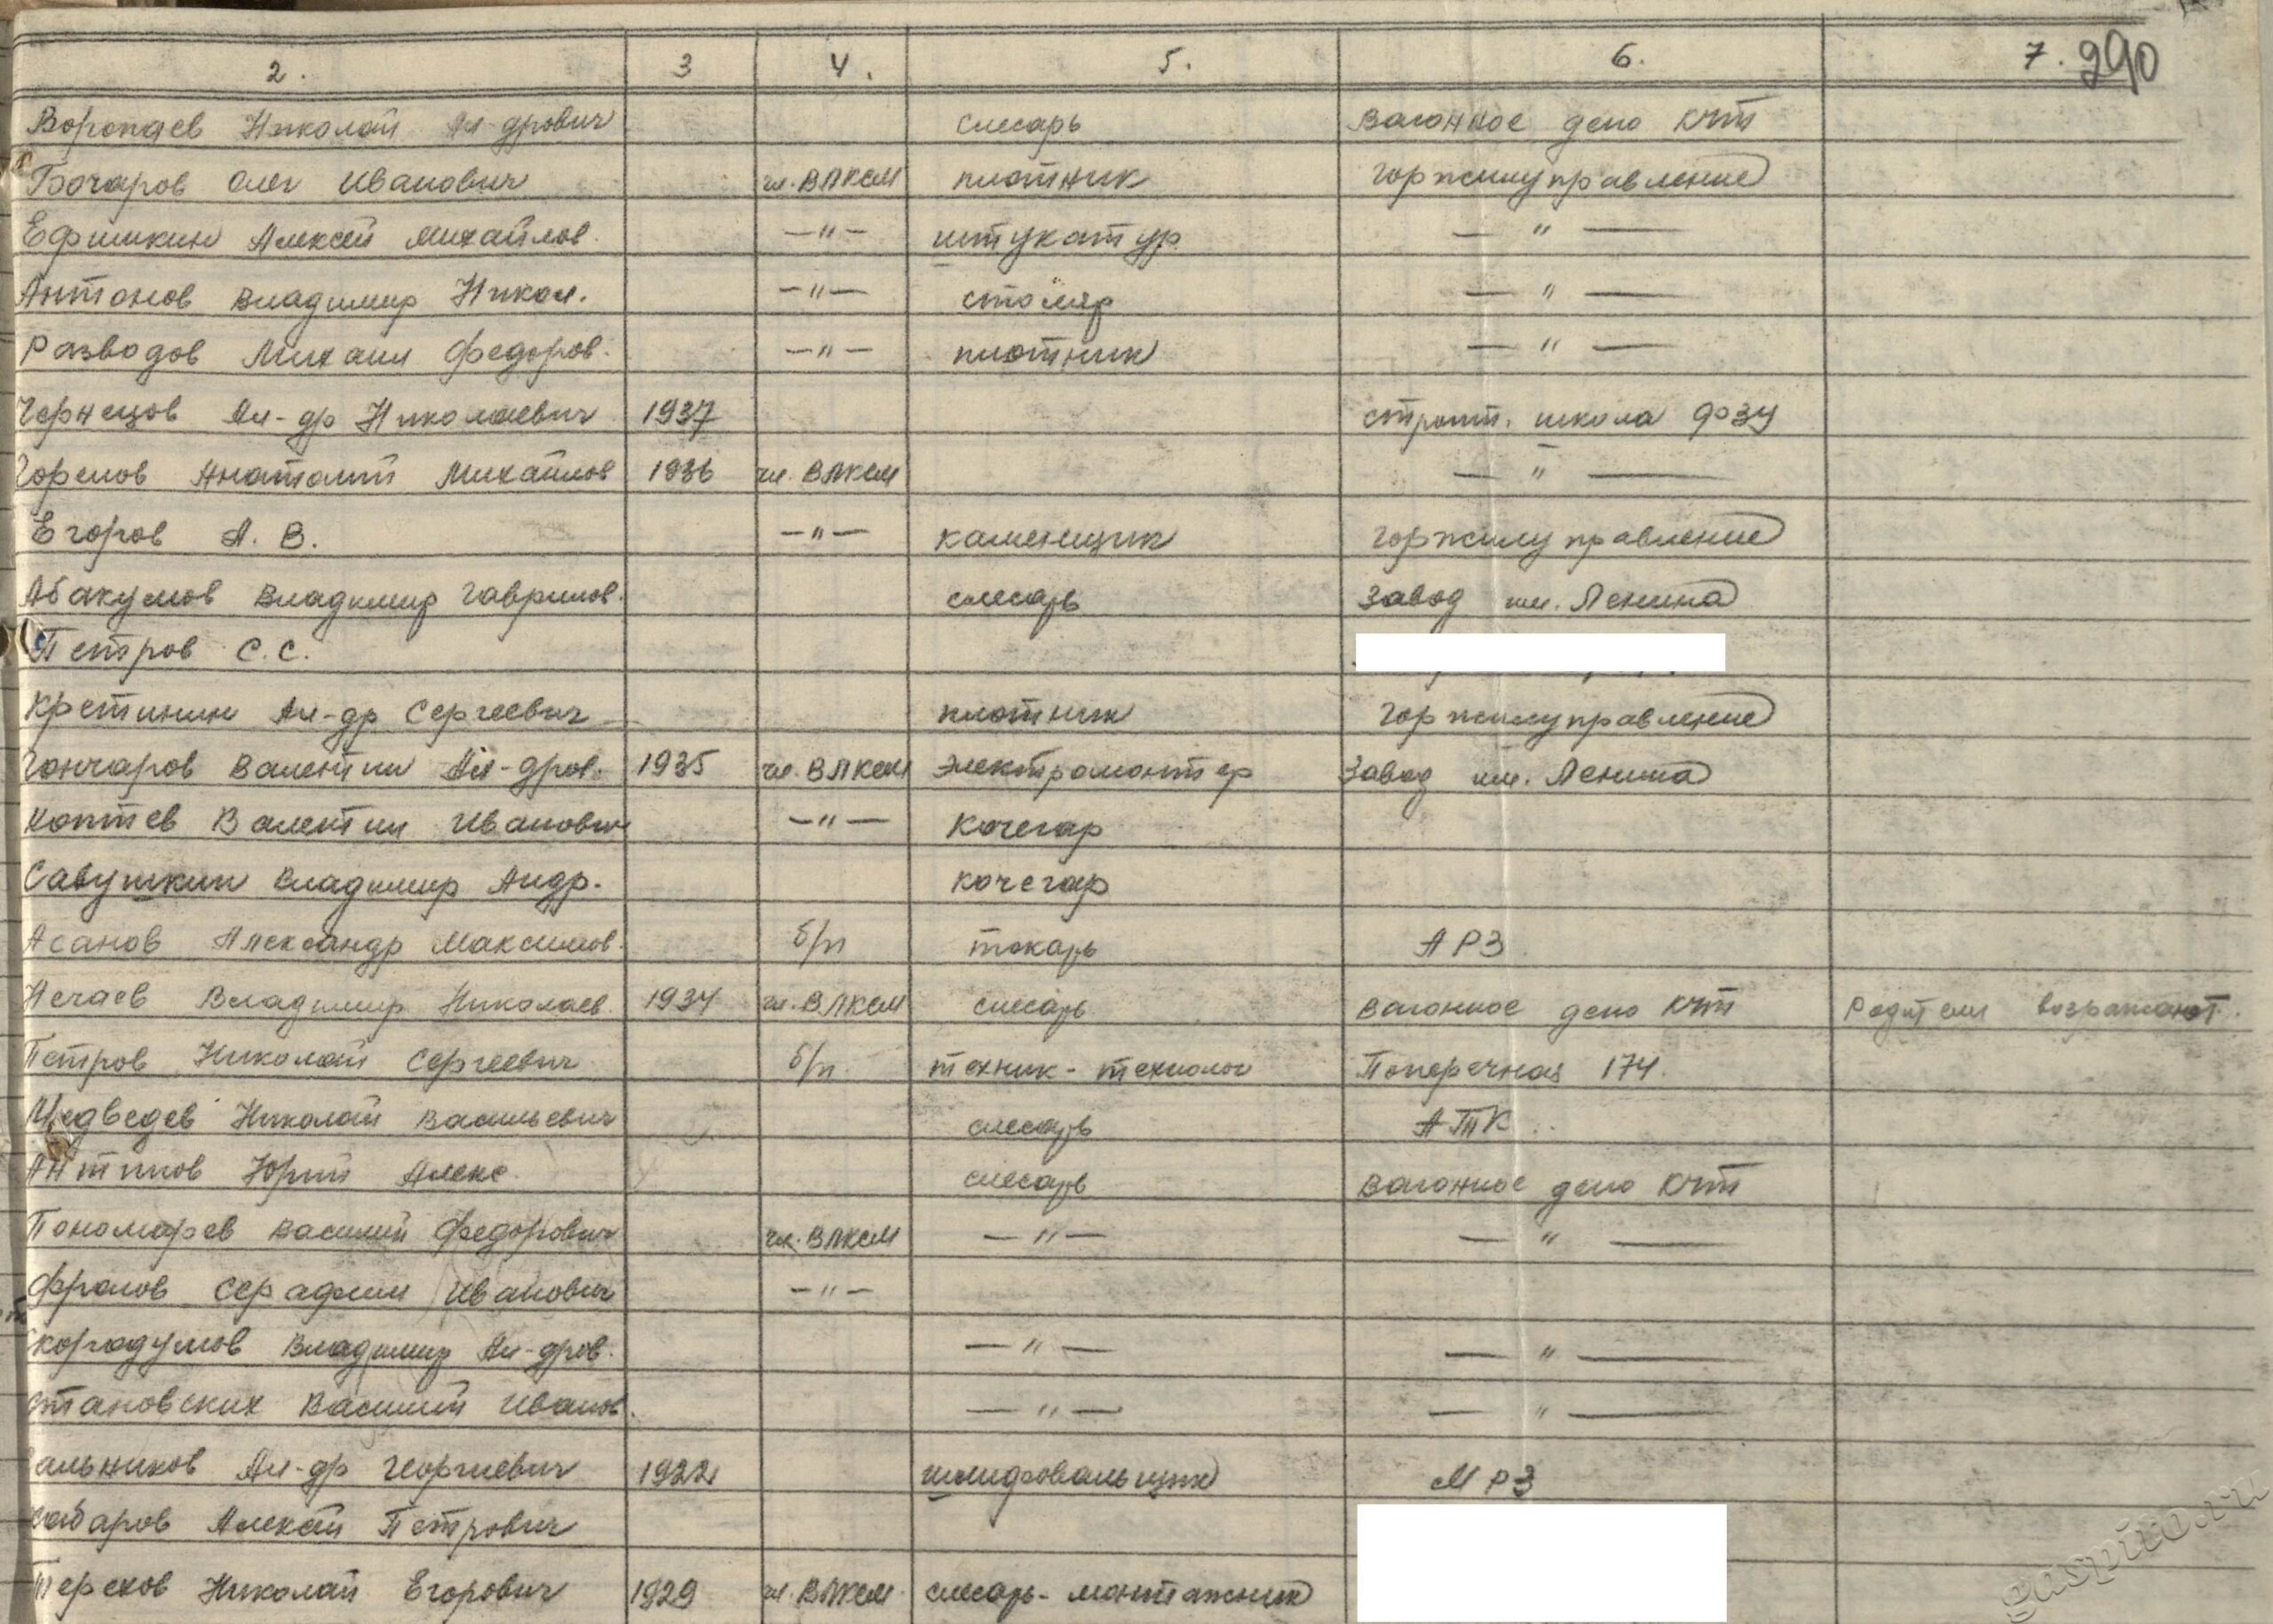 2. 3 4. 5. 6. 7. 290
Воропаев Николай Ал-дрович слесарь Вагонное депо КЧТ
Бочаров Олег Иванович чл. ВЛКСМ плотник Горжилуправление
Ефишкин Алексей Михайлов. —"— штукатур — " —
Антонов Владимир Никол. —"— столяр — " —
Разводов Михаил Федоров. —"— плотник — " —
Чернецов Ал-др Николаевич 1937 строит. школа ФЗУ
Горелов Анатолий Михайлов 1936 чл. ВЛКСМ — " —
Егоров А. В. —"— каменщик Горжилуправление
Абакумов Владимир Гаврилов. слесарь Завод им. Ленина
Петров С. С.
Кретинин Ал-др Сергеевич плотник Горжилуправление
Гончаров Валентин Ал-дров. 1935 чл. ВЛКСМ электромонтер Завод им. Ленина
Коптев Валентин Иванович —"— Кочегар
Савушкин Владимир Андр. кочегар
Асанов Александр Максимов. б/п токарь АРЗ
Нечаев Владимир Николаев. 1934 чл. ВЛКСМ слесарь Вагонное депо КЧТ Родители возражают.
Петров Николай Сергеевич б/п. техник-технолог Поперечная 174.
Медведев Николай Васильевич слесарь АТК
Антипов Юрий Алекс. слесарь Вагонное депо КЧТ
Пономарев Василий Федорович чл. ВЛКСМ —"— — " —
Фролов Серафим Иванович —"—
Скородумов Владимир Ал-дров. —"— — " —
становских Василий Иванов. —"— — " —
альников Ал-др Георгиевич 1922 шлифовальщик МРЗ
Алексей Петрович
Терехов Николай Егорович 1929 чл. ВЛКСМ. слесарь-монтажник
gaspito.ru